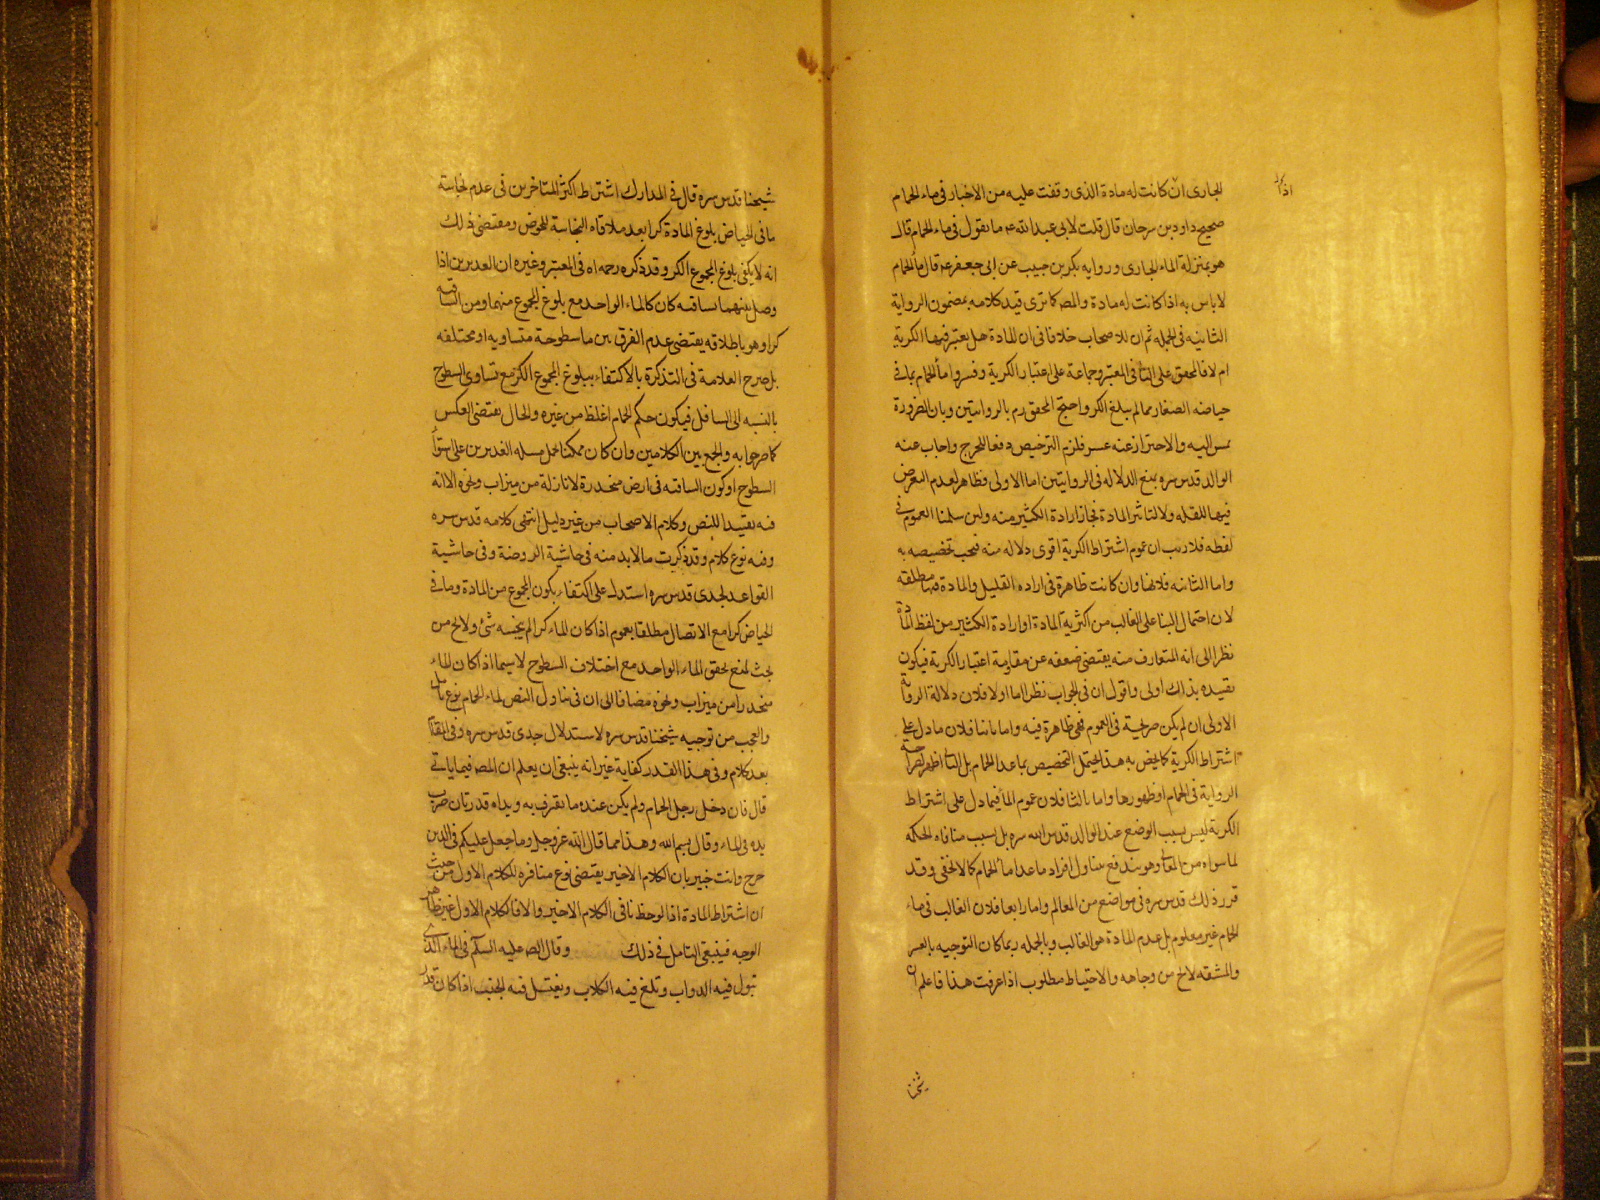 اذا
الجارى ان كانت له مادة الذى وقفت عليه من الاخبار فى ماء الحمام
صحيح داود بن سرحان قال قلت لابى عبد الله ع ما تقول فى ماء الحمام قال
هو بمنزلة الماء الجارى ورواية بكر بن حبيب عن ابى جعفر ع قال ماء الحمام
لا باس به اذا كانت له مادة والمص كما ترى قيد كلامه بمضمون الرواية
الثانية فى الجملة ثم ان للاصحاب خلافا فى ان المادة هل يعتبر فيها الكرية
ام لا فالمحقق على الثانى فى المعتبر وجماعة على اعتبار الكرية وفسروا ماء الحمام بما فى
حياضه الصغار مما لم يبلغ الكر واحتج المحقق ره بالروايتين وبان الضرورة
تمس اليه والاحتراز عنه عسر فلزم الترخيص دفعا للحرج واجاب عنه
الوالد قدس سره بمنع الدلالة فى الروايتين اما الاولى فظاهر لعدم التعرض
فيها للقلة ولا لتاثير المادة فجاز ارادة الكثير منه ولئن سلمنا العموم فى
لفظه فلا ريب ان عموم اشتراط الكرية اقوى دلالة منه فيجب تخصيصه به
واما الثانية فلانها وان كانت ظاهرة فى ارادة القليل والمادة فيها مطلقة
لان احتمال البنا على الغالب من اكثرية المادة او ارادة الكثير من لفظ المادة
نظرا الى انه المتعارف منه يقتضى ضعفه عن مقاومة اعتبار الكرية فيكون
تقييده بذاك اولى واقول ان فى الجواب نظرا اما اولا فلان دلالة الرواية
الاولى ان لم يكن صريحة فى العموم فهى ظاهرة فيه واما ثانيا فلان ما دل على
اشتراط الكرية كما يخص به هذا يحتمل التخصيص بما عدا الحمام بل الثانى اظهر لصراحة
الرواية فى الحمام او ظهورها واما ثالثا فلان عموم الماء فيما دل على اشتراط
الكرية ليس بسبب الوضع عند الوالد قدس الله سره بل بسبب منافاه الحكمة
لما سواه من المعانى وهو يندفع بتناول افراد ما عدا ماء الحمام كما لا يخفى وقد
قرر ذلك قدس سره فى مواضع من المعالم واما رابعا فلان الغالب فى ماء
الحمام غير معلوم بل عدم المادة هو الغالب وبالجملة ربما كان التوجيه بالعسر
والمشقة لا يخ من وجاهة والاحتياط مطلوب اذا عرفت هذا فاعلم ان
شيخنا
شيخنا قدس سره قال فى المدارك اشترط اكثر المتاخرين فى عدم نجاسة
ما فى الحياض بلوغ المادة كرا بعد ملاقاه النجاسة للحوض ومقتضى ذلك
انه لا يكفى بلوغ المجموع الكر وقد ذكره رحمه اه فى المعتبر وغيره ان الغديرين اذا
وصل بينهما بساقية كان كالماء الواحد مع بلوغ المجموع منهما ومن الساقية
كرا وهو باطلاقه يقتضى عدم الفرق بين ما سطوحه متساوية او مختلفة
بل صرح العلامة فى التذكرة بالاكتفاء ببلوغ المجموع الكر مع تساوى السطوح
بالنسبه الى السافل فيكون حكم الحمام اغلظ من غيره والحال يقتضى العكس
كما صرحوا به والجمع بين الكلامين وان كان ممكنا بحمل مسله الغديرين على استواء
السطوح او كون الساقيه فى ارض منحدرة لا نازلة من ميزاب ونحوه الا انه
فيه تقييدا للنص وكلام الاصحاب من غير دليل انتهى كلامه قدس سره
وفيه نوع كلام وقد ذكرت ما لا بد منه فى حاشية الروضة وفى حاشية
القواعد لجدى قدس سره استدل على اكتفاء بكون المجموع من المادة وما فى
الحياض كرا مع الاتصال مطلقا بعموم اذا كان الماء كرا لم ينجسه شئ ولا يخ من
بحث لمنع تحقق الماء الواحد مع اختلاف السطوح لاسيما اذا كان الماء
منحدرا من ميزاب ونحوه مضافا الى ان فى تناول النص لماء الحمام نوع تامل
والعجب من توجيه شيخنا قدس سره لاستدلال جدى قدس سره وفى المقام
بعد كلام وفى هذا القدر كفاية غير انه ينبغى ان يعلم ان المص فيما ياتى
قال فان دخل رجل الحمام ولم يكن عنده ما يغرف به ويداه قذرتان ضرب
يده فى الماء وقال بسم الله وهذا مما قال الله عز وجل وما جعل عليكم فى الدين
حرج وانت خبير بان الكلام الاخير يقتضى نوع منافرة للكلام الاول من حيث
ان اشتراط المادة اذا لوحظ نافى الكلام الاخير والا فالكلام الاول غير ظاهر
الوجه فينبغى التامل فى ذلك وقال الص عليه السلم فى الماء الذى
تبول فيه الدواب وتلغ فيه الكلاب ويغتسل فيه الجنب اذا كان قدر